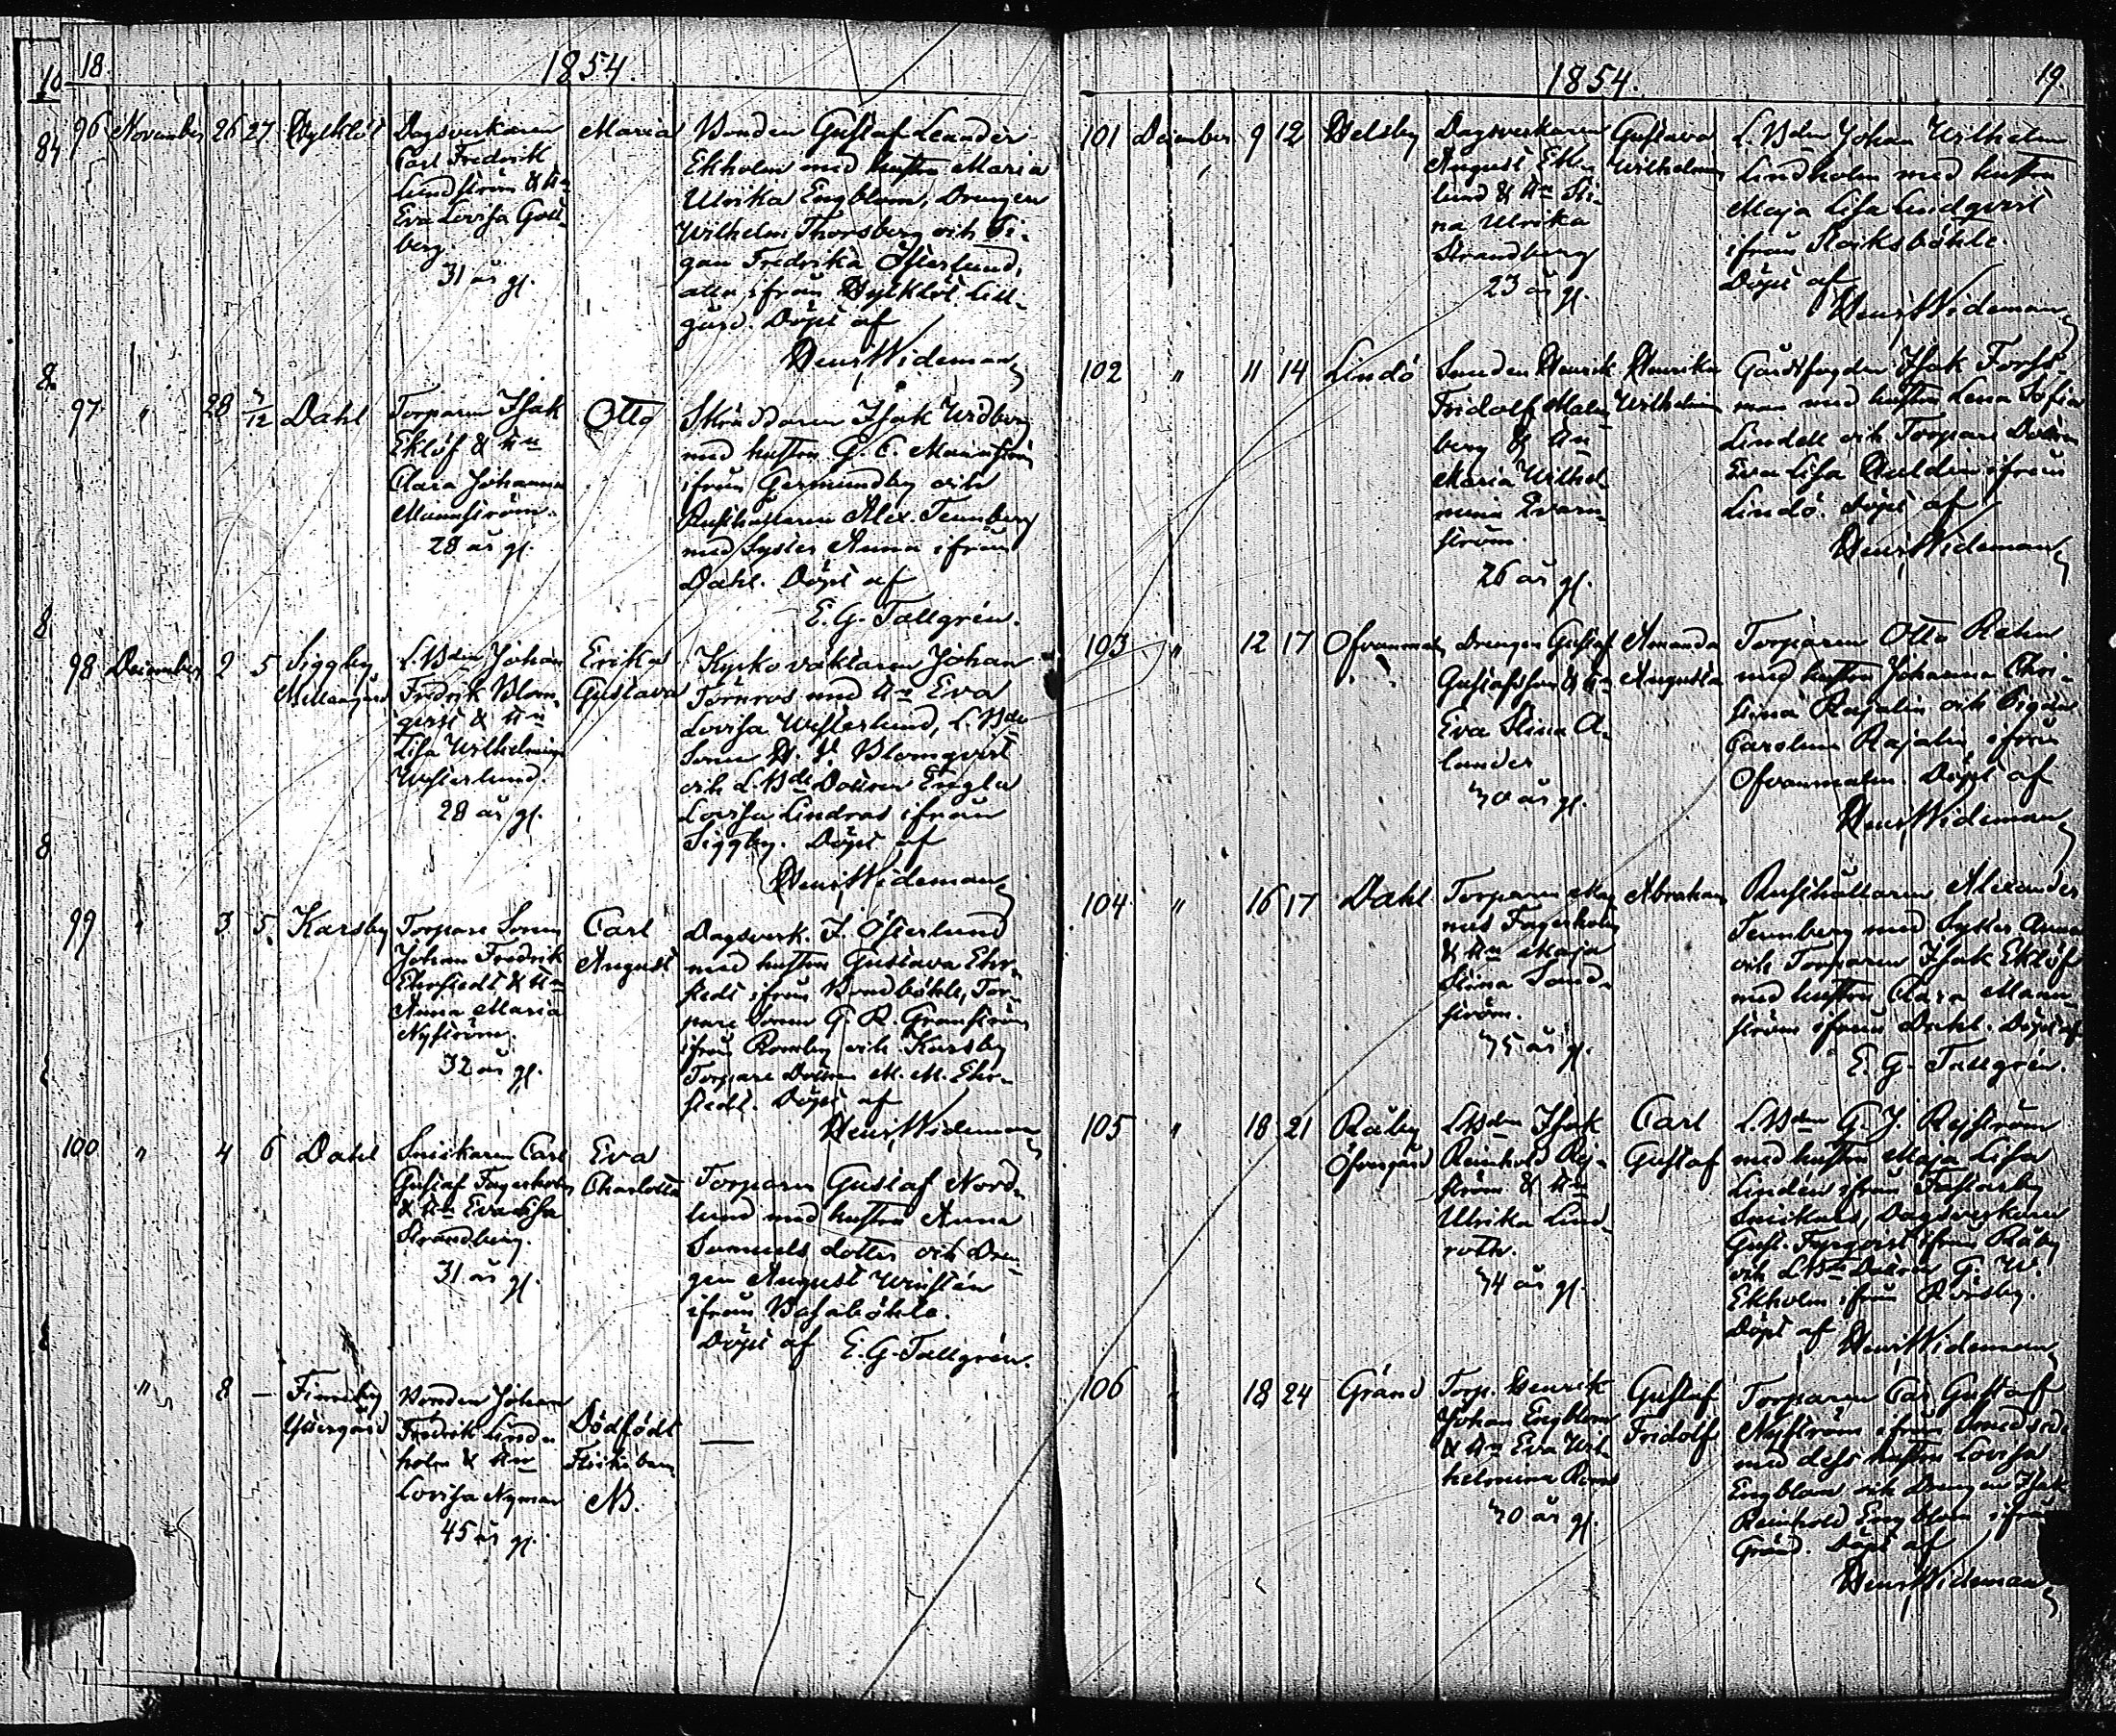 18.
1854.
96 November 26 27 Hylklöt
Dagsverkaren
Carl Fredrik
Lundström & H:n
Eva Lovisa Gott-
berg.
31 år gl.
Maria
Bonden Gustaf Leander
Ekholm med hustru Maria
Ulrika Engblom, Drengen
Wilhelm Thorsberg och Pi-
gan Fredrika Österlund,
alla ifrån Hylklöt Lill-
gård. Döpt af
Henr Wideman
97 " 28 3/12 Dahl
Torparen Isak
Eklöf & H:n
Clara Johanna
Mannström.
28 år gl.
Otto
Skräddaren Isak Widberg
med hustru G. C. Mannström
ifrån Germundby och
Rusthållaren Alex. Tennberg
med Syster Anna ifrån
Dahl. Döpt af
E. G. Tallgrén.
98 December 2 5 Siggby
Mellangård
L. Bden Johan
Fredrik Blom-
qvist & H:n
Lisa Wilhelmina
Westerlund.
28 år gl.
Erika
Gustava
Kyrkoväktaren Johan
Törnros med H:n Eva
Lovisa Westerlund, L. Bde
Sonen Blomqvist
och L. Bde Dottren Engla
Lovisa Lindros ifrån
Siggby. Döpt af
Henr Wideman
99 " 3 5. Karsby
Torpare Sonen
Johan Fredrik
Ehrstedt & H:n
Anna Maria
Nyström.
32 år gl.
Carl
August
Dagsverk. J. Österlund
med hustru Gustava Ehr-
stedt ifrån Brudböhle, Tor-
pare Sonen G. R. Granström
ifrån Romby och Karsby
Torpare Dottren M. M. Ehr-
stedt. Döpt af
Henr Wideman
100 " 4 6 Dahl
Snickaren Carl
Gustaf Fagerholm
& H:n Eva Lisa
Strandberg.
31 år gl.
Eva
Charlotta
Torparen Gustaf Nord-
lund med hustru Anna
Samuels dotter och Dren-
gen August Winstén
ifrån Basaböhle.
Döpt af E. G. Tallgrén.
" 8 — Finnby
Yttergård
Bonden Johan
Fredrik Lind-
holm & H:n
Lovisa Nyman
45 år gl.
Dödfödt
Flickebarn
NB.
—
1854.
19.
101 December 9 12 Helsby
Dagsverkaren
August Ek-
lund & H:n Sti-
na Ulrika
Strandberg
23 år gl.
Gustava
Wilhelmina
L. Bden Johan Wilhelm
Lindholm med hustru
Maja Lisa Lindqvist
ifrån Storksböhle.
Döpt af
Henr Wideman
102 " 11 14 Lindö
Smeden Henrik
Fridolf Malm-
berg & H:n
Maria Wilhel-
mina Qvarn-
ström.
26 år gl.
Henrika
Wilhelmina
Gårdsfogden Isak Forss-
man med hustru Lena Sofia
Lindell och Torpare Dottren
Eva Lisa Huldin ifrån
Lindö. Döpt af
Henr Wideman
103 " 12 17 Ofvanmalm
Drengen Gustaf
Gustafsson & H:n
Eva Stina A-
lander
30 år gl.
Amanda
Augusta
Torparen Otto Rehn
med hustru Johanna Chri-
stina Rajalin och Pigan
Carolina Rajalin, ifrån
Ofvanmalm. Döpt af
Henr Wideman
104 " 16 17 Dahl
Torparen Mag-
nus Fagerholm
& H:n Maja
Stina Sand-
ström.
35 år gl.
Abraham
Rusthållaren Alexander
Tennberg med Syster Anna
och Torparen Isak Eklöf
med hustru Clara Mann-
ström ifrån Dahl. Döpt af
E. G. Tallgrén.
105 " 18 21 Råby
Öfvergård
L. Bden Isak
Reinhold Rej-
ström & H:n
Ulrika Lind-
roth.
34 år gl.
Carl
Gustaf
L. Bden G. J. Rejström
med hustru Maja Lisa
Lindén ifrån Fastarby
Snickars, Dagsverkaren
Gust. ifrån Råby
och L. Bde Dottren G. W.
Ekholm ifrån Rösby.
Döpt af Henr Wideman
106 " 18 24 Gränd
Torp. Henrik
Johan Engblom
& H:n Eva Wil-
helmina Roos
30 år gl.
Gustaf
Fridolf
Torparen Carl Gustaf
Nyström ifrån
med dess hustru Lovisa
Engblom och Drengen Isak
Reinhold Engblom ifrån
Gränd. Döpt af
Henr Wideman